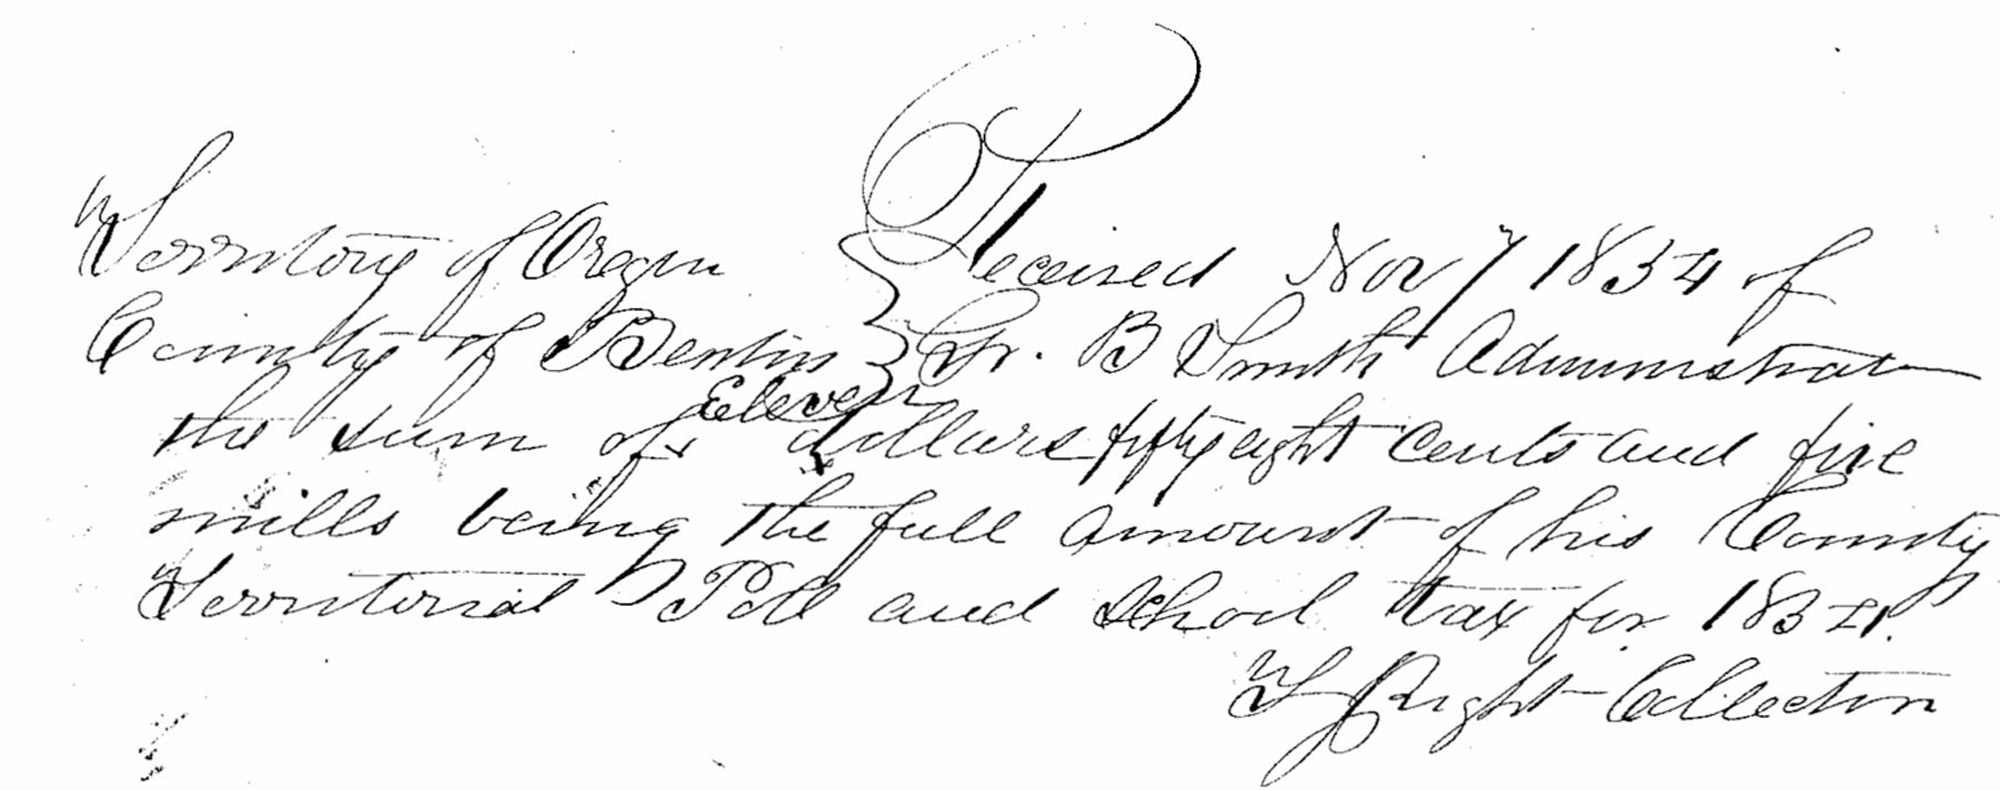 Territory of Oregon } Received Nov 7 1854 of
County of Benton } Gr. B Smith Administrator
the sum of Eleven dollars fifty eight cents and five
mills being the full amount of his County
Territorial Poll and School tax for 1854.
T J Right Collector